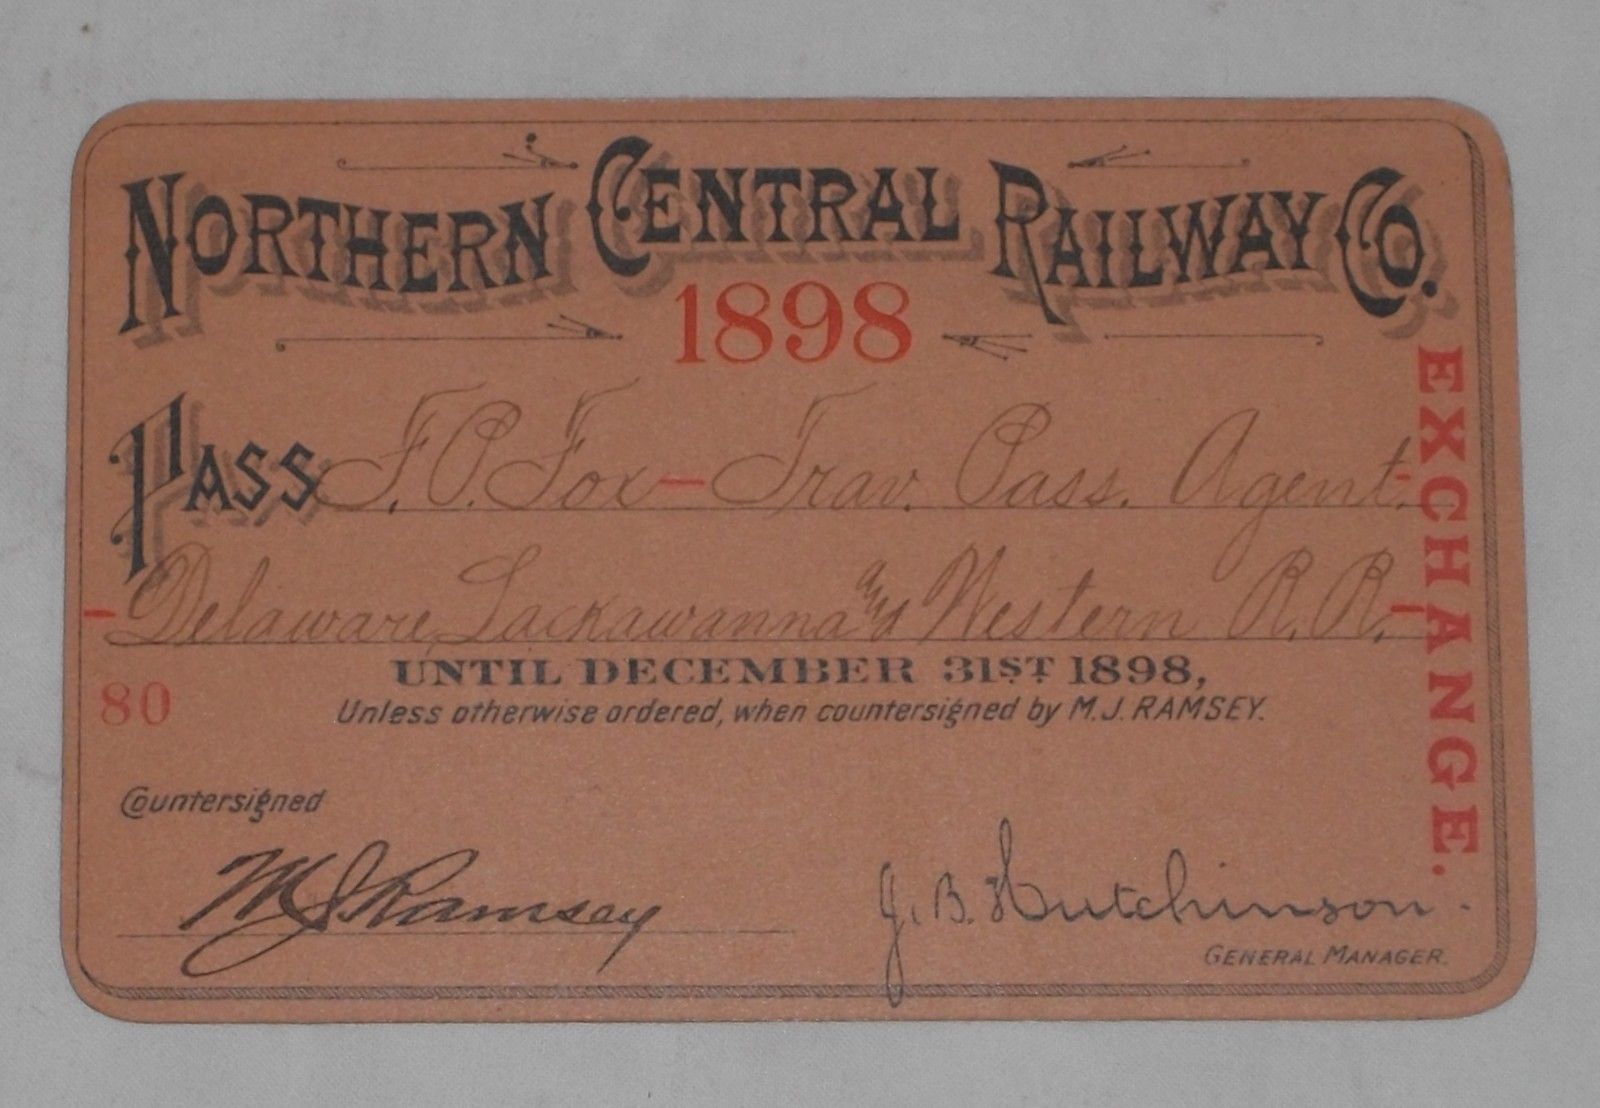 NORTHERN CENTRAL RAILWAY CO.
1898
PASS F. P. Fox — Trav. Pass. Agent.
Delaware, Lackawanna and Western R. R.
UNTIL DECEMBER 31ST 1898,
80
Unless otherwise ordered, when countersigned by M. J. RAMSEY.
EXCHANGE.
Countersigned
M J Ramsey
J. B. Hutchinson.
GENERAL MANAGER.